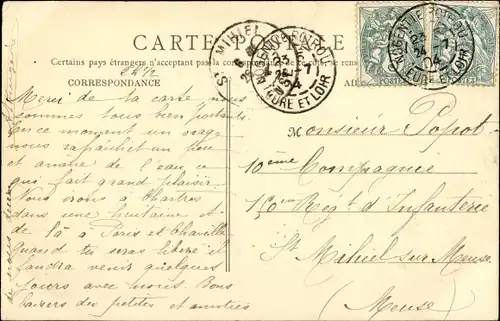 CARTE POSTALE
Certains pays étrangers n'acceptent pas de correspondance de ce côté, se ren
CORRESPONDANCE
Merci de la carte nous
sommes tous bien portants
En ce moment un orage
nous rafraîchit un peu
et amène de l'eau ce
qui fait grand plaisir
Nous irons à Chartres
dans une huitaine et
de là à Paris et Charville
Quand tu seras libéré il
faudra venir quelques
jours avec nous. Bons
baisers des petites et amitiés
ST MIHIEL
NOGENT-LE-ROTROU
EURE ET LOIR
04
NOGENT-LE-ROTROU
EURE ET LOIR
04
Monsieur Popot
10ème Compagnie
150ème Régt d'Infanterie
St Mihiel sur Meuse
(Meuse)